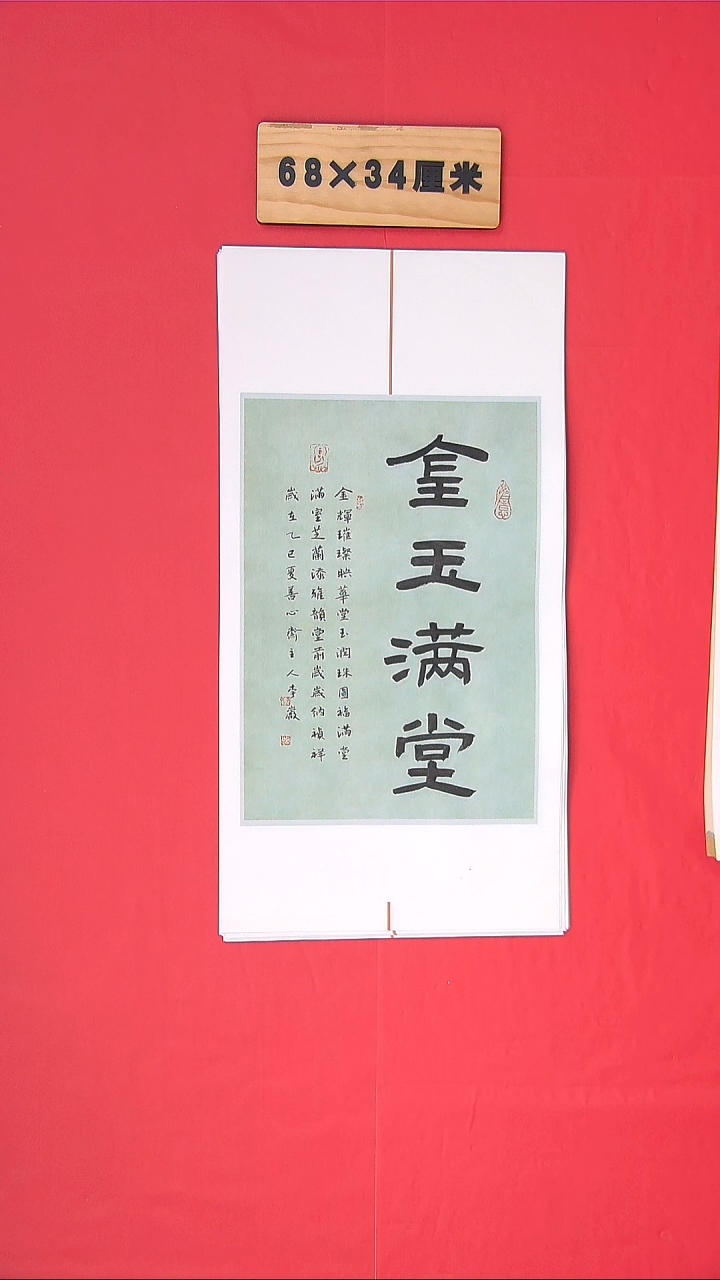 68×34厘米
金玉满堂
金輝璀璨映華堂玉潤珠圓福满堂
满室芝蘭添雅韻堂前歲歲納禎祥
歲在乙巳夏善心齋主人李巌